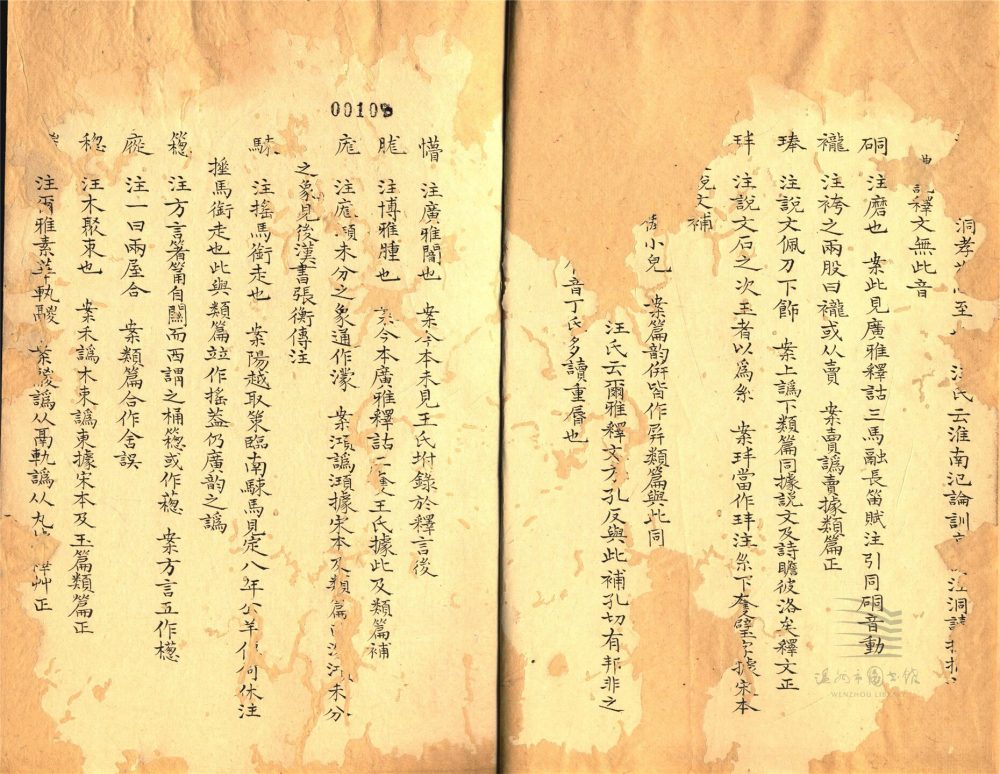 洞孝 至 汪氏云淮南氾論訓 洞
釋文無此音
硐 注磨也 案此見廣雅釋詁三馬融長笛賦注引同硐音動
襱 注袴之兩股曰襱或从賣 案賣譌賣據類篇正
琫 注說文佩刀下飾 案上譌下類篇同據說文及詩瞻彼洛矣釋文正
玤 注說文石之次玉者以爲系 案玤當作玤注系下奎璧字據宋本
說文補
小兒 案篇韵倂皆作屛類篇與此同
汪氏云爾雅釋文方孔反與此補孔切有邦非之
音丁氏多讀重脣也
00108
懵 注廣雅闇也 案今本未見王氏坿錄於釋言後
注博雅腫也 案今本廣雅釋詁二 王氏據此及類篇補
注庬澒未分之象通作濛 案澒譌澒據宋本及類篇 未分
之象見後漢書張衡傳注
駷 注搖馬銜走也 案陽越取策臨南駷馬見定八年公羊傳何休注
捶馬銜走也此與類篇竝作搖蓋仍廣韵之譌
注方言箸筩自關而西謂之桶檧或作 案方言五作檧
注一曰兩屋合 案類篇合作舍誤
注木聚束也 案禾譌木束譌東據宋本及玉篇類篇正
注爾雅素華軌鬷 案 譌从鬲軌譌从九 正
WENZHOU LIBRARY